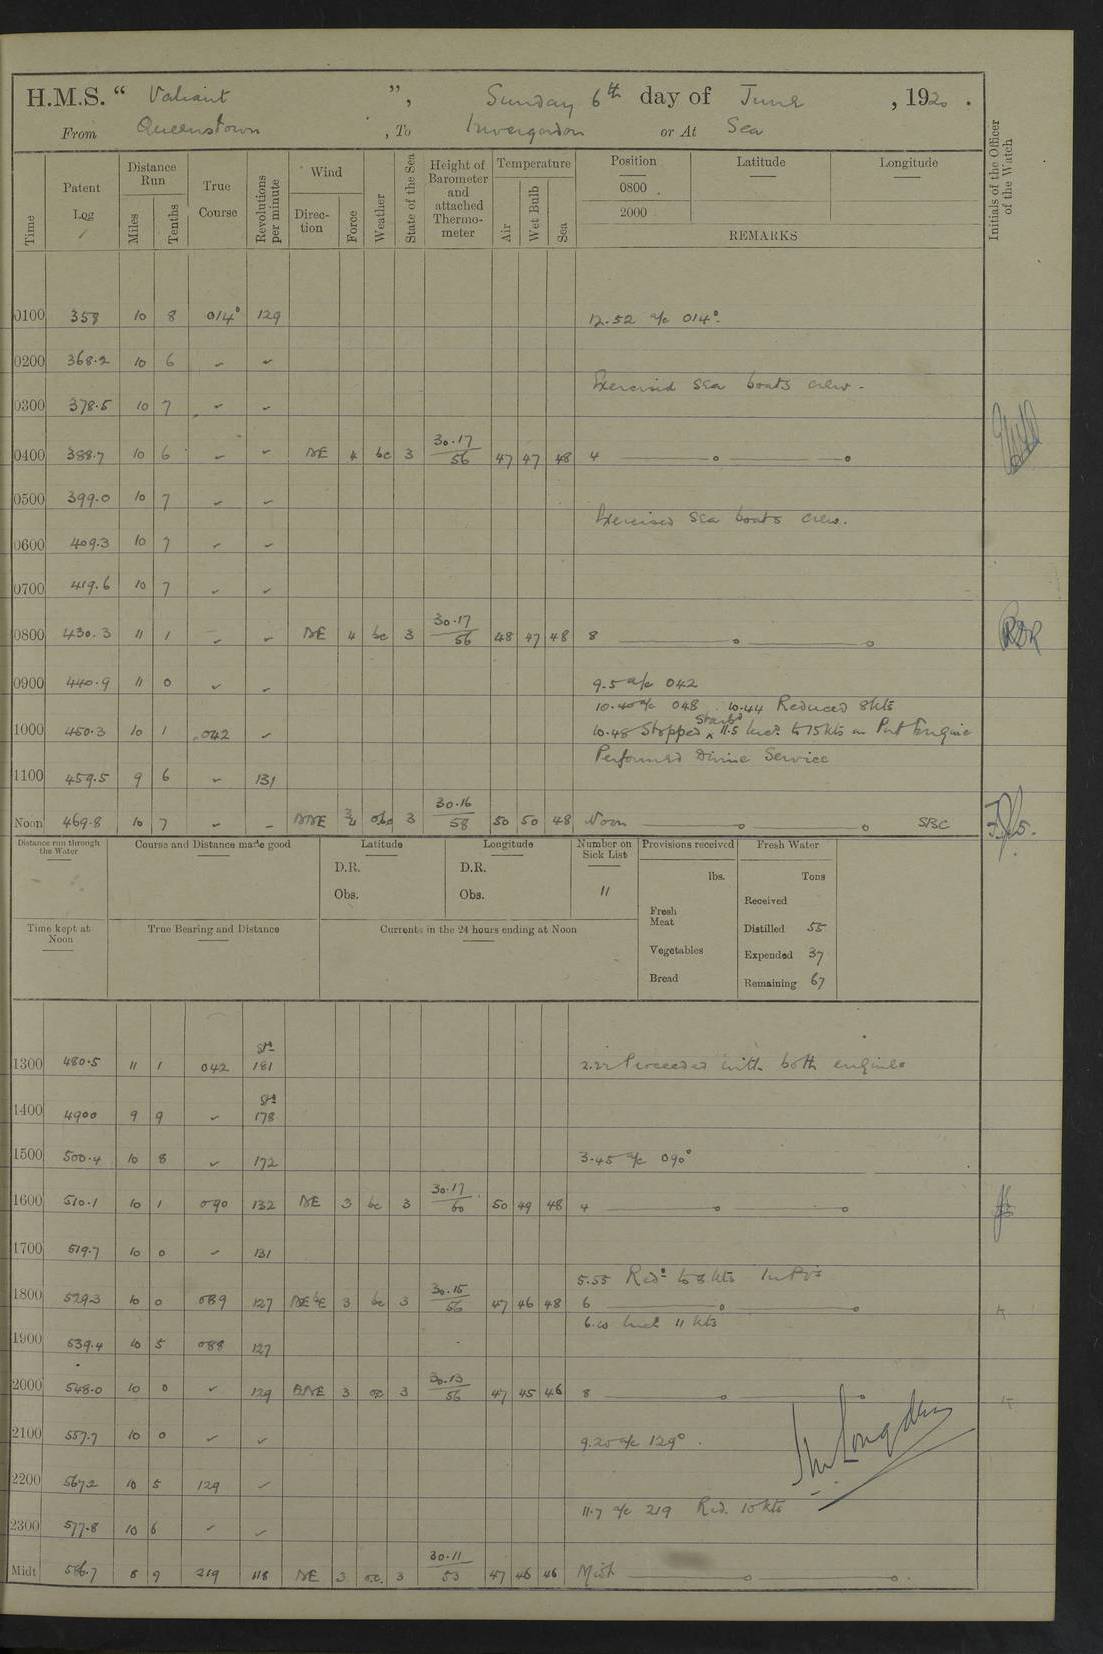 H.M.S. “ Valiant ”, Sunday 6th day of June , 1920 .
From Queenstown , To Invergordon or At Sea
Time Patent Log Distance Run Miles Tenths True Course Revolutions per minute Wind Direction Force Weather State of the Sea Height of Barometer and attached Thermometer Temperature Air Wet Bulb Sea Position Latitude Longitude
0800
2000
REMARKS
Initials of the Officer of the Watch
0100 358 10 8 014° 129 12.52 a/c 014°.
0200 368.2 10 6 ✓ ✓
Exercised sea boats crew.
0300 378.5 10 7 ✓ ✓
0400 388.7 10 6 ✓ ✓ NE 4 bc 3 30.17/56 47 47 48 4
0500 399.0 10 7 ✓ ✓
Exercised sea boats crew.
0600 409.3 10 7 ✓ ✓
0700 419.6 10 7 ✓ ✓
0800 430.3 11 1 ✓ ✓ NE 4 bc 3 30.17/56 48 47 48 8 RDR
0900 440.9 11 0 ✓ ✓ 9.5 a/c 042
10.40 a/c 048 . 10.44 Reduced 8 kts
1000 450.3 10 1 042 ✓ 10.48 Stopped Starbd 11.5 Incd. to 15 kts on Port Engine
Performed Divine Service
1100 459.5 9 6 ✓ 131
Noon 469.8 10 7 - - NNE 3/4 obc 3 30.16/58 50 50 48 Noon SBC
Distance run through the Water
Course and Distance made good
Latitude
D.R.
Obs.
Longitude
D.R.
Obs.
Number on Sick List
11
Provisions received
lbs.
Fresh Meat
Vegetables
Bread
Fresh Water
Tons
Received
Distilled 55
Expended 37
Remaining 67
Time kept at Noon
True Bearing and Distance
Currents in the 24 hours ending at Noon
1300 480.5 11 1 042 181 2.22 Proceeded with both engines
1400 4900 9 9 ✓ 178
1500 500.4 10 8 ✓ 172 3.45 a/c 090°
1600 510.1 10 1 090 132 NE 3 bc 3 30.17/60 50 49 48 4
1700 519.7 10 0 ✓ 131
5.55 Red. to 8 kts
1800 529.3 10 0 089 127 NEbE 3 bc 3 30.15/56 47 46 48 6
6.10 Incd 11 kts
1900 539.4 10 5 088 127
2000 548.0 10 0 ✓ 129 ENE 3 3 30.13/56 47 45 46 8
2100 557.7 10 0 ✓ ✓ 9.20 a/c 129° .
2200 567.2 10 5 129 ✓
11.7 a/c 219 Red. 10 kts
2300 577.8 10 6 ✓ ✓
Midt 586.7 8 9 219 118 NE 3 oc. 3 30.11/53 47 46 46 Midt